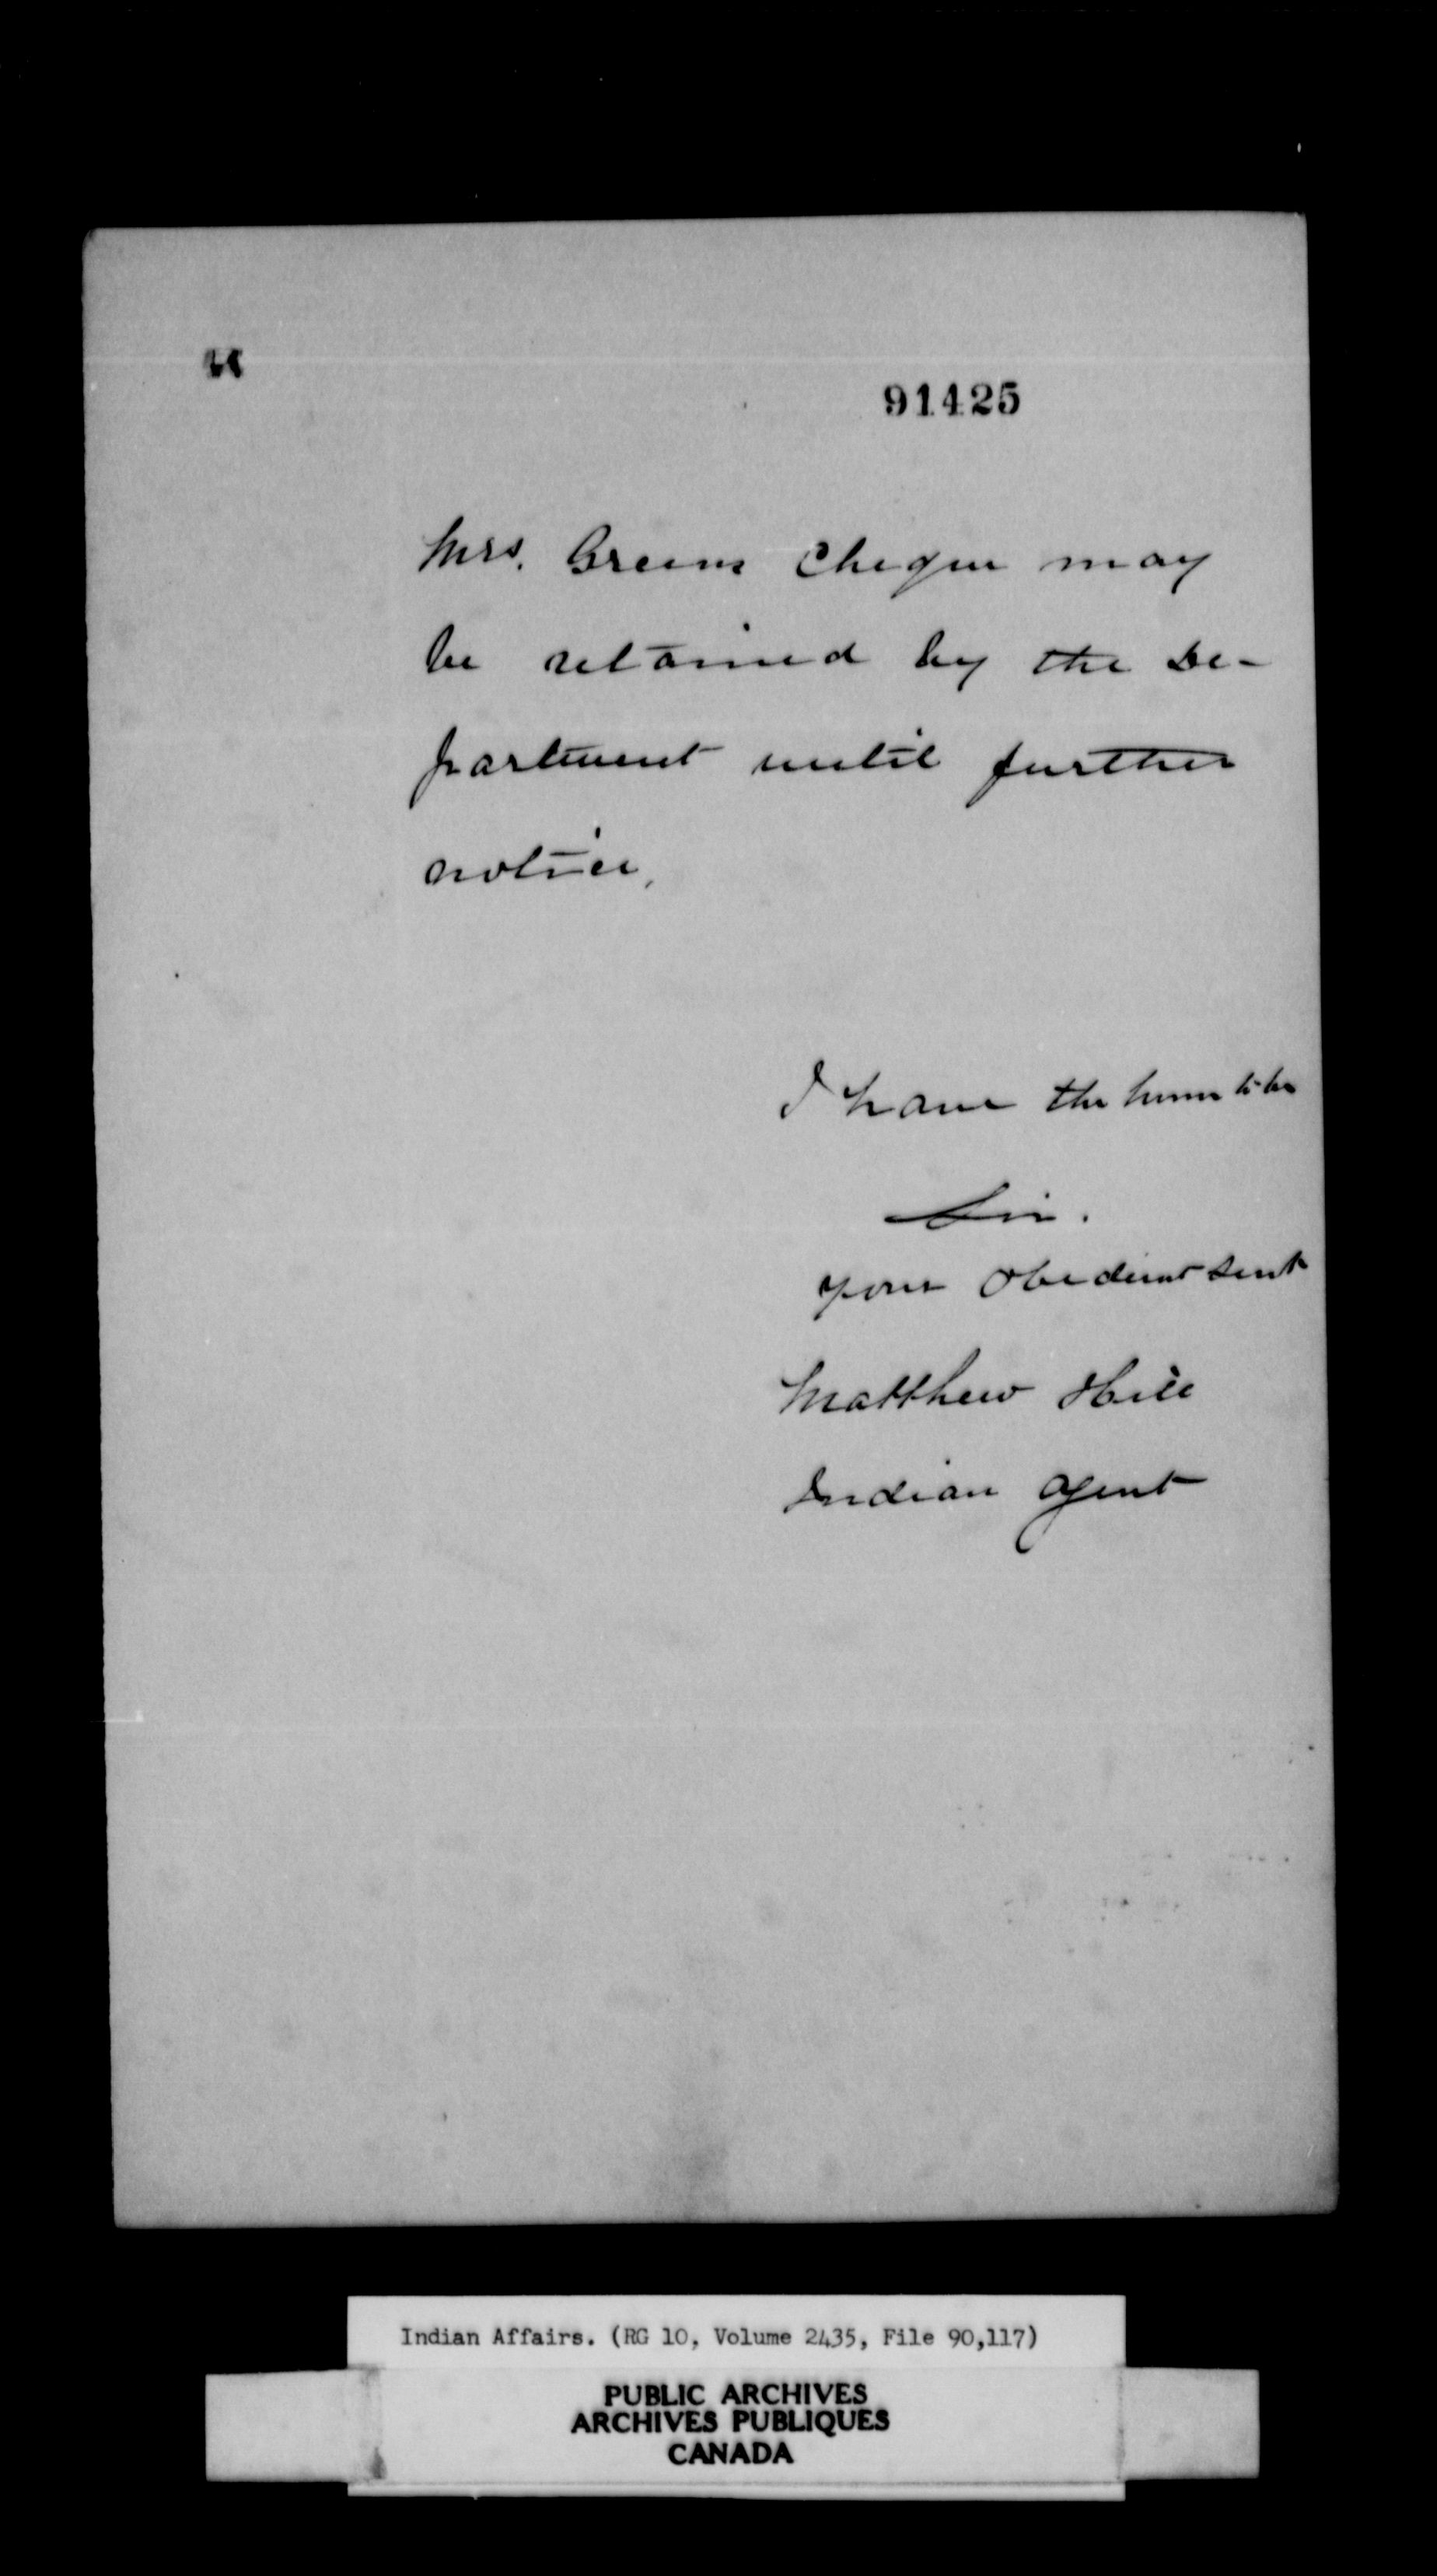 91425
Mrs. Greens Cheque may
be retained by the De-
partment until further
notice,
I have the honor to be
Sir.
your Obedient Servt
Matthew Hill
Indian Agent
Indian Affairs. (RG 10, Volume 2435, File 90,117)
PUBLIC ARCHIVES
ARCHIVES PUBLIQUES
CANADA